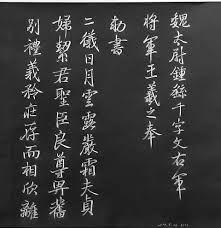 魏太尉鍾繇千字文右軍
將軍王羲之奉
勅書
二儀日月雲露嚴霜夫貞
婦絜君聖臣良尊
別禮義矜莊而相欣離